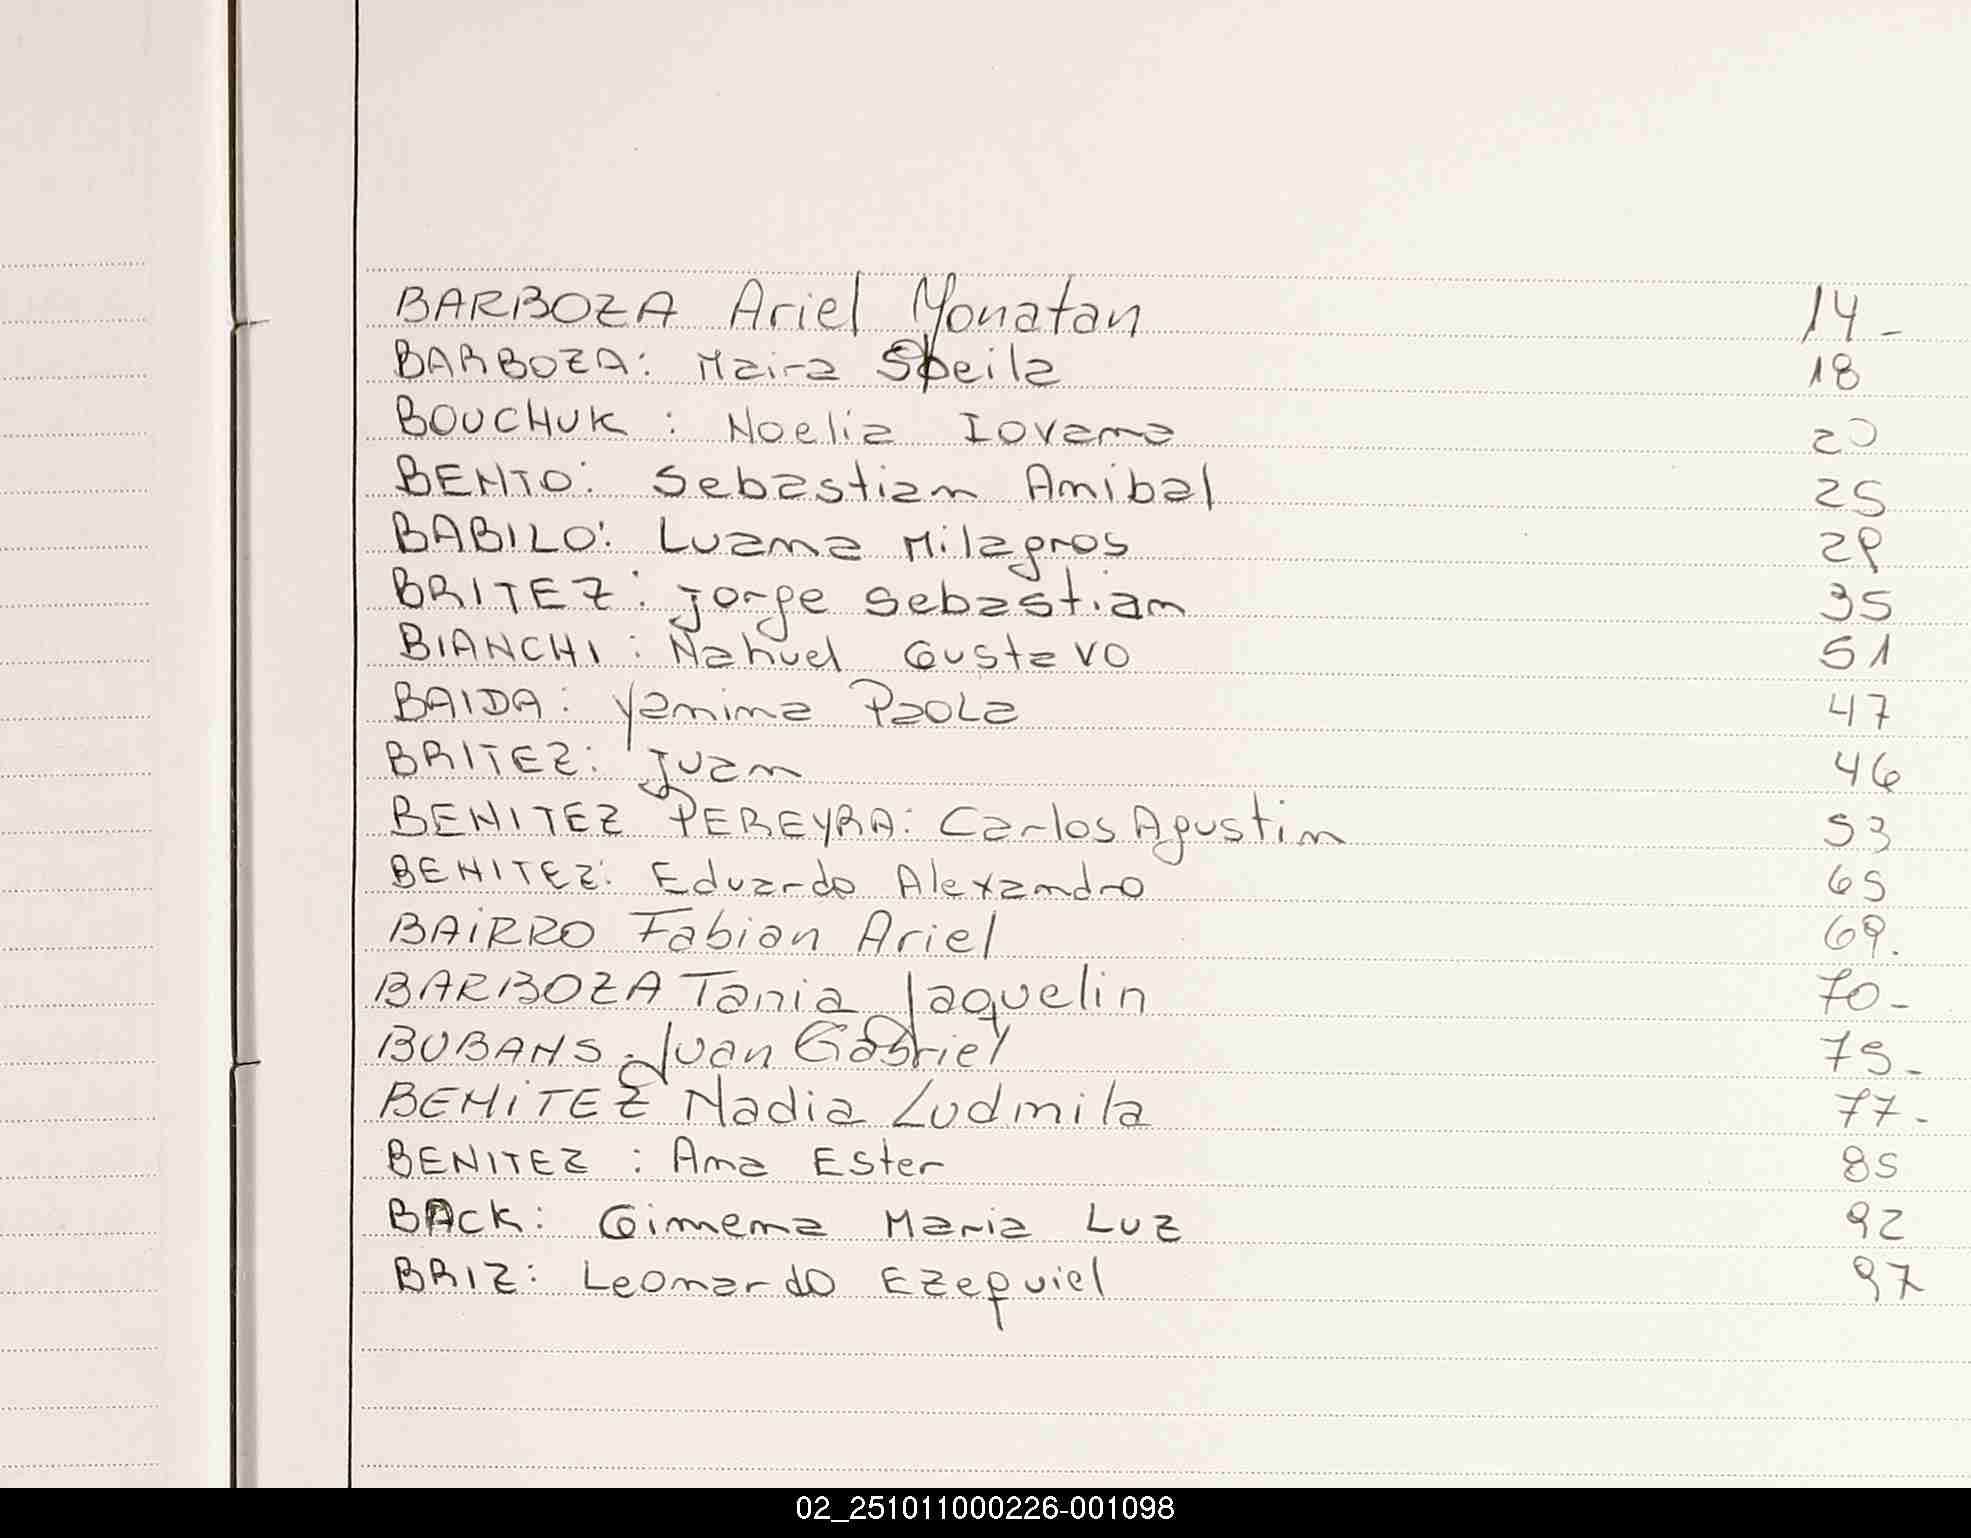 BARBOZA Ariel Yonatan 14-
BARBOZA: Maira Sheila 18
BOUCHUK : Noelia Iovana 20
BENTO: Sebastian Anibal 25
BABILO: Luana Milagros 29
BRITEZ: Jorge Sebastian 35
BIANCHI : Nahuel Gustavo 51
BAIDA: Yanina Paola 47
BRITEZ: Juan 46
BENITEZ PEREYRA: Carlos Agustin 53
BENITEZ: Eduardo Alexandro 65
BAiRRO Fabian Ariel 69.
BARBOZA Tania Jaquelin 70-
BUBANS Juan Gabriel 75-
BENiTEZ Nadia Ludmila 77-
BENITEZ : Ana Ester 85
BACK: Gimena Maria Luz 92
BRIZ: Leonardo Ezequiel 97
02_251011000226-001098